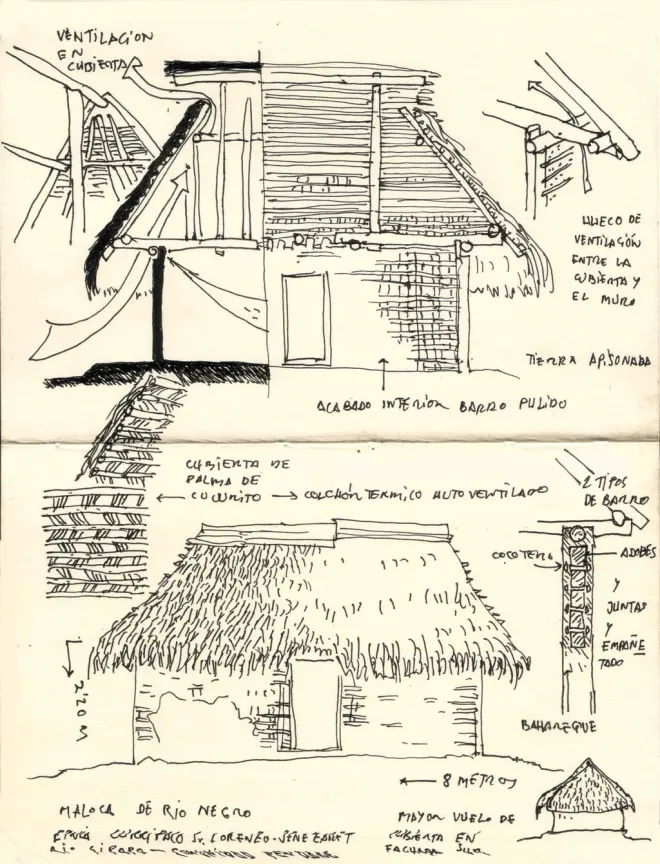 VENTILACION
EN
CUBIERTA
HUECO DE
VENTILACIÓN
ENTRE LA
CUBIERTA Y
EL MURO
TIERRA APISONADA
ACABADO INTERIOR BARRO PULIDO
CUBIERTA DE
PALMA DE
CUCURITO
COLCHÓN TERMICO AUTOVENTILADO
2 TIPOS
DE BARRO
ADOBES
Y
JUNTAS
Y
EMPAÑE
TADO
BAHAREQUE
2'20 M
8 METROS
MALOCA DE RIO NEGRO
MAYOR VUELO DE
CUBIERTA EN
FACHADA SUR